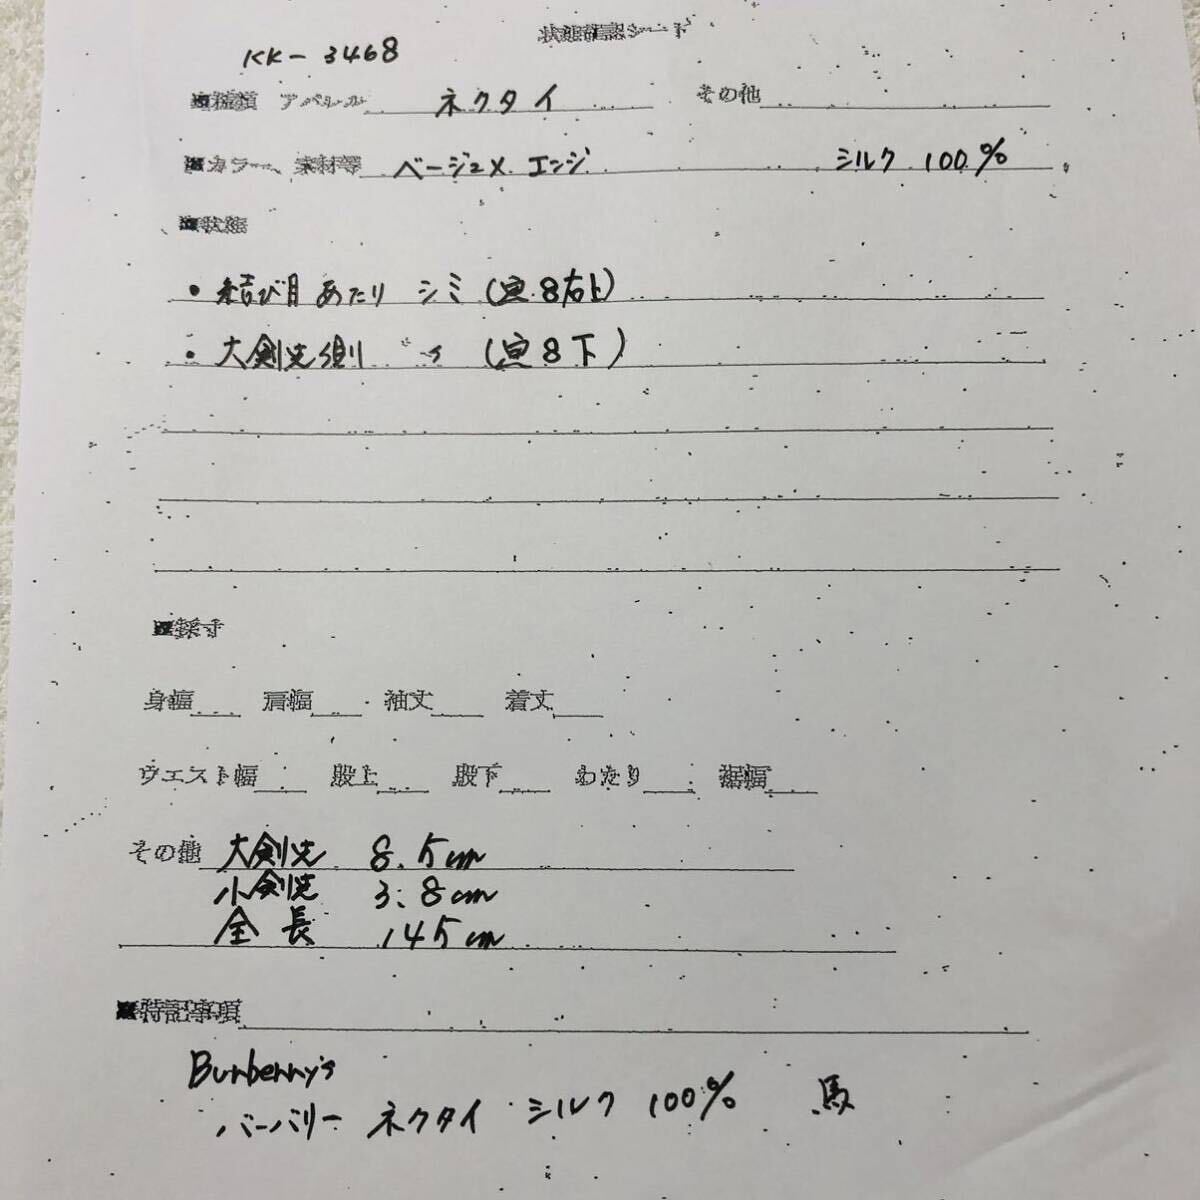 状態確認シート
KK-3468
■種類 アパレル ネクタイ その他
■カラー、素材等 ベージュ× エンジ シルク 100%
■状態
・結び目あたり シミ (画8右上)
・大剣先側 〃 (画8下)
■採寸
身幅 肩幅 袖丈 着丈
ウエスト幅 股上 股下 わたり 裾幅
その他 大剣先 8.5cm
小剣先 3.8cm
全長 145cm
■特記事項
Burberry's
バーバリー ネクタイ シルク 100% 馬